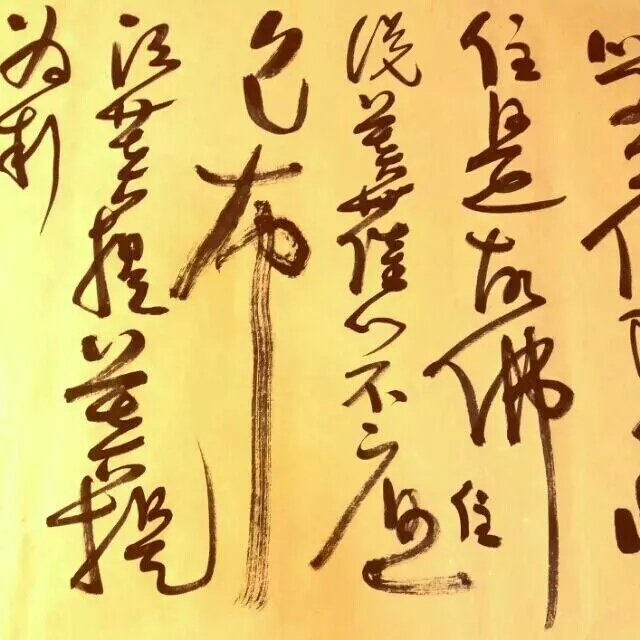 住是故佛
說菩薩心不應住
色布
須菩提菩提
为利